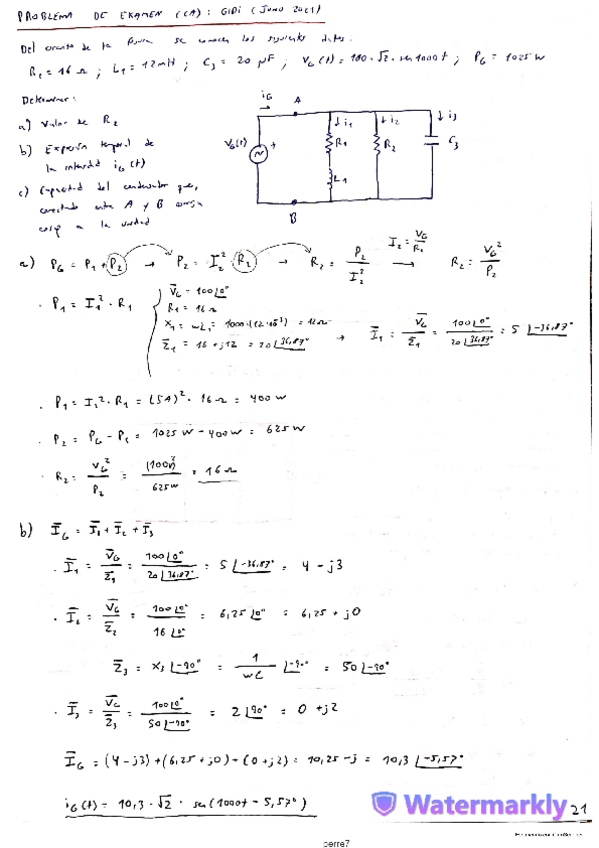 PROBLEMA DE EXAMEN (CA): GIDI (JUNIO 2021)
Del circuito de la figura se conocen los siguientes datos:
R₁ = 16 Ω ; L₁ = 12 mH ; C₃ = 20 μF ; V_G(t) = 100·√2·sen 1000t ; P_G = 1025 W
Determinar:
a) Valor de R₂
b) Expresión temporal de
la intensidad i_G(t)
c) Capacidad del condensador que,
conectado entre A y B consiga
cosφ a la unidad
i_G A
↓i₁ ↓i₂ ↓i₃
V_G(t) + R₁ R₂ C₃
L₁
B
a) P_G = P₁ + P₂ → P₂ = I₂²·R₂ → R₂ = P₂/I₂² I₂ = V_G/R₂ → R₂ = V_G²/P₂
· P₁ = I₁²·R₁
V̄_G = 100∠0°
R₁ = 16 Ω
X₁ = ωL₁ = 1000·(12·10⁻³) = 12 Ω
Z̄₁ = 16 + j12 = 20∠36,87° → Ī₁ = V̄_G/Z̄₁ = 100∠0°/20∠36,87° = 5∠-36,87°
· P₁ = I₁²·R₁ = (5A)²·16 Ω = 400 W
· P₂ = P_G - P₁ = 1025 W - 400 W = 625 W
· R₂ = V_G²/P₂ = (100V)²/625 W = 16 Ω
b) Ī_G = Ī₁ + Ī₂ + Ī₃
· Ī₁ = V̄_G/Z̄₁ = 100∠0°/20∠36,87° = 5∠-36,87° = 4 - j3
· Ī₂ = V̄_G/Z̄₂ = 100∠0°/16∠0° = 6,25∠0° = 6,25 + j0
Z̄₃ = X₃∠-90° = 1/ωC ∠-90° = 50∠-90°
· Ī₃ = V̄_G/Z̄₃ = 100∠0°/50∠-90° = 2∠90° = 0 + j2
Ī_G = (4 - j3) + (6,25 + j0) + (0 + j2) = 10,25 - j = 10,3∠-5,57°
i_G(t) = 10,3·√2·sen(1000t - 5,57°)
Watermarkly
21
perre7